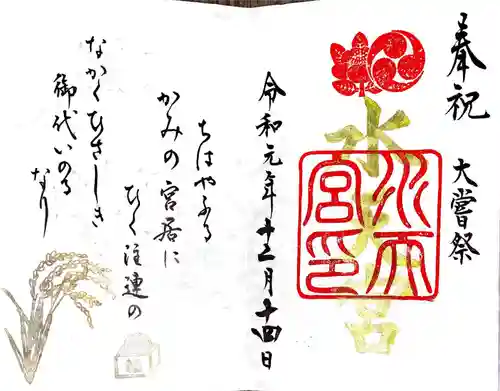 奉祝 大嘗祭
水天宮
水天宮印
令和元年十一月十四日
ちはやふる
かみの宮居に
ひく注連の
なかくひさしき
御代いのる
なり